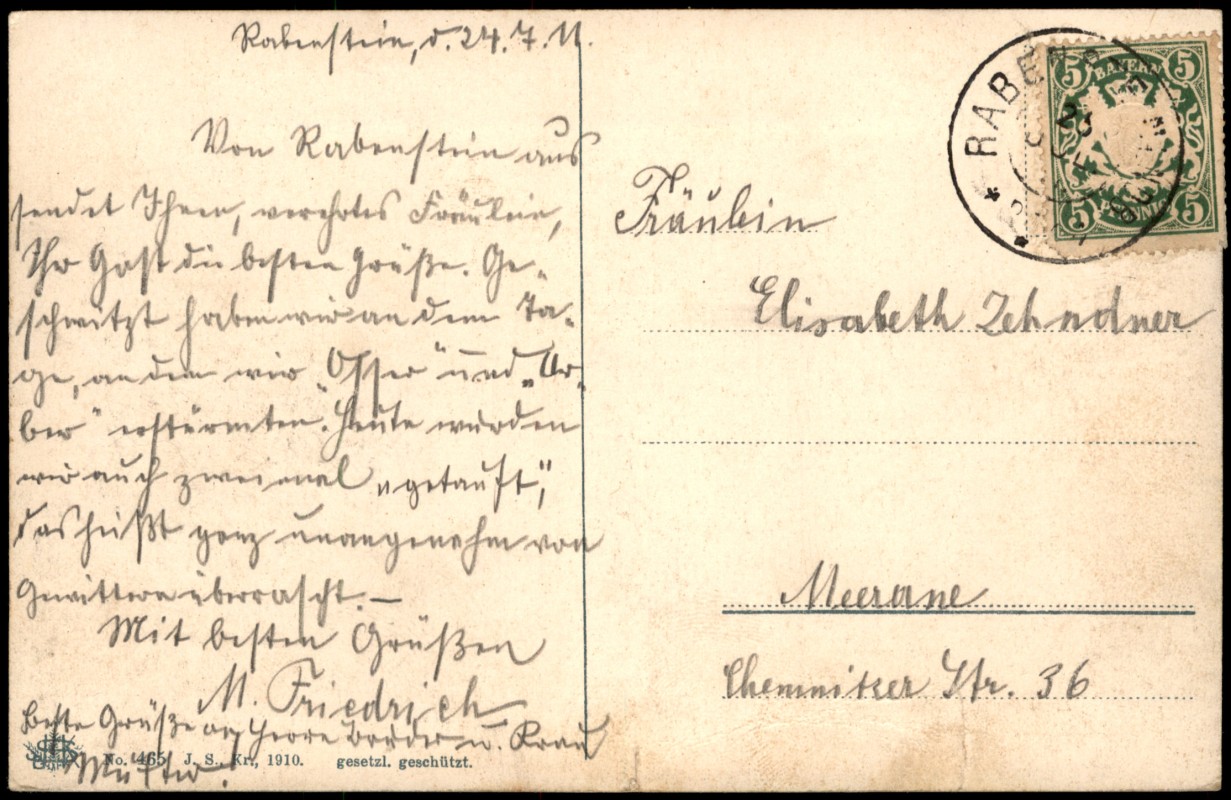 Rabenstein, d. 24.7.11.
Von Rabenstein aus
sendet Ihnen, verehrtes Fräulein,
Ihr Gast die besten Grüße. Ge-
schwitzt haben wir an dem Ta-
ge, an dem wir „Osser" und „Ar-
ber" erstürmten. Heute wurden
wir auch zweimal „getauft",
das heißt ganz unangenehm von
Gewittern überrascht. —
Mit besten Grüßen
M. Friedrich
Beste Grüße an Herrn Bruder u. Frau
Mutter!
No. 465 J. S., Kr., 1910. gesetzl. geschützt.
RABENSTEIN
5 BAYERN 5
5 PFENNIG 5
Fräulein
Elisabeth Zehndner
Meerane
Chemnitzer Str. 36